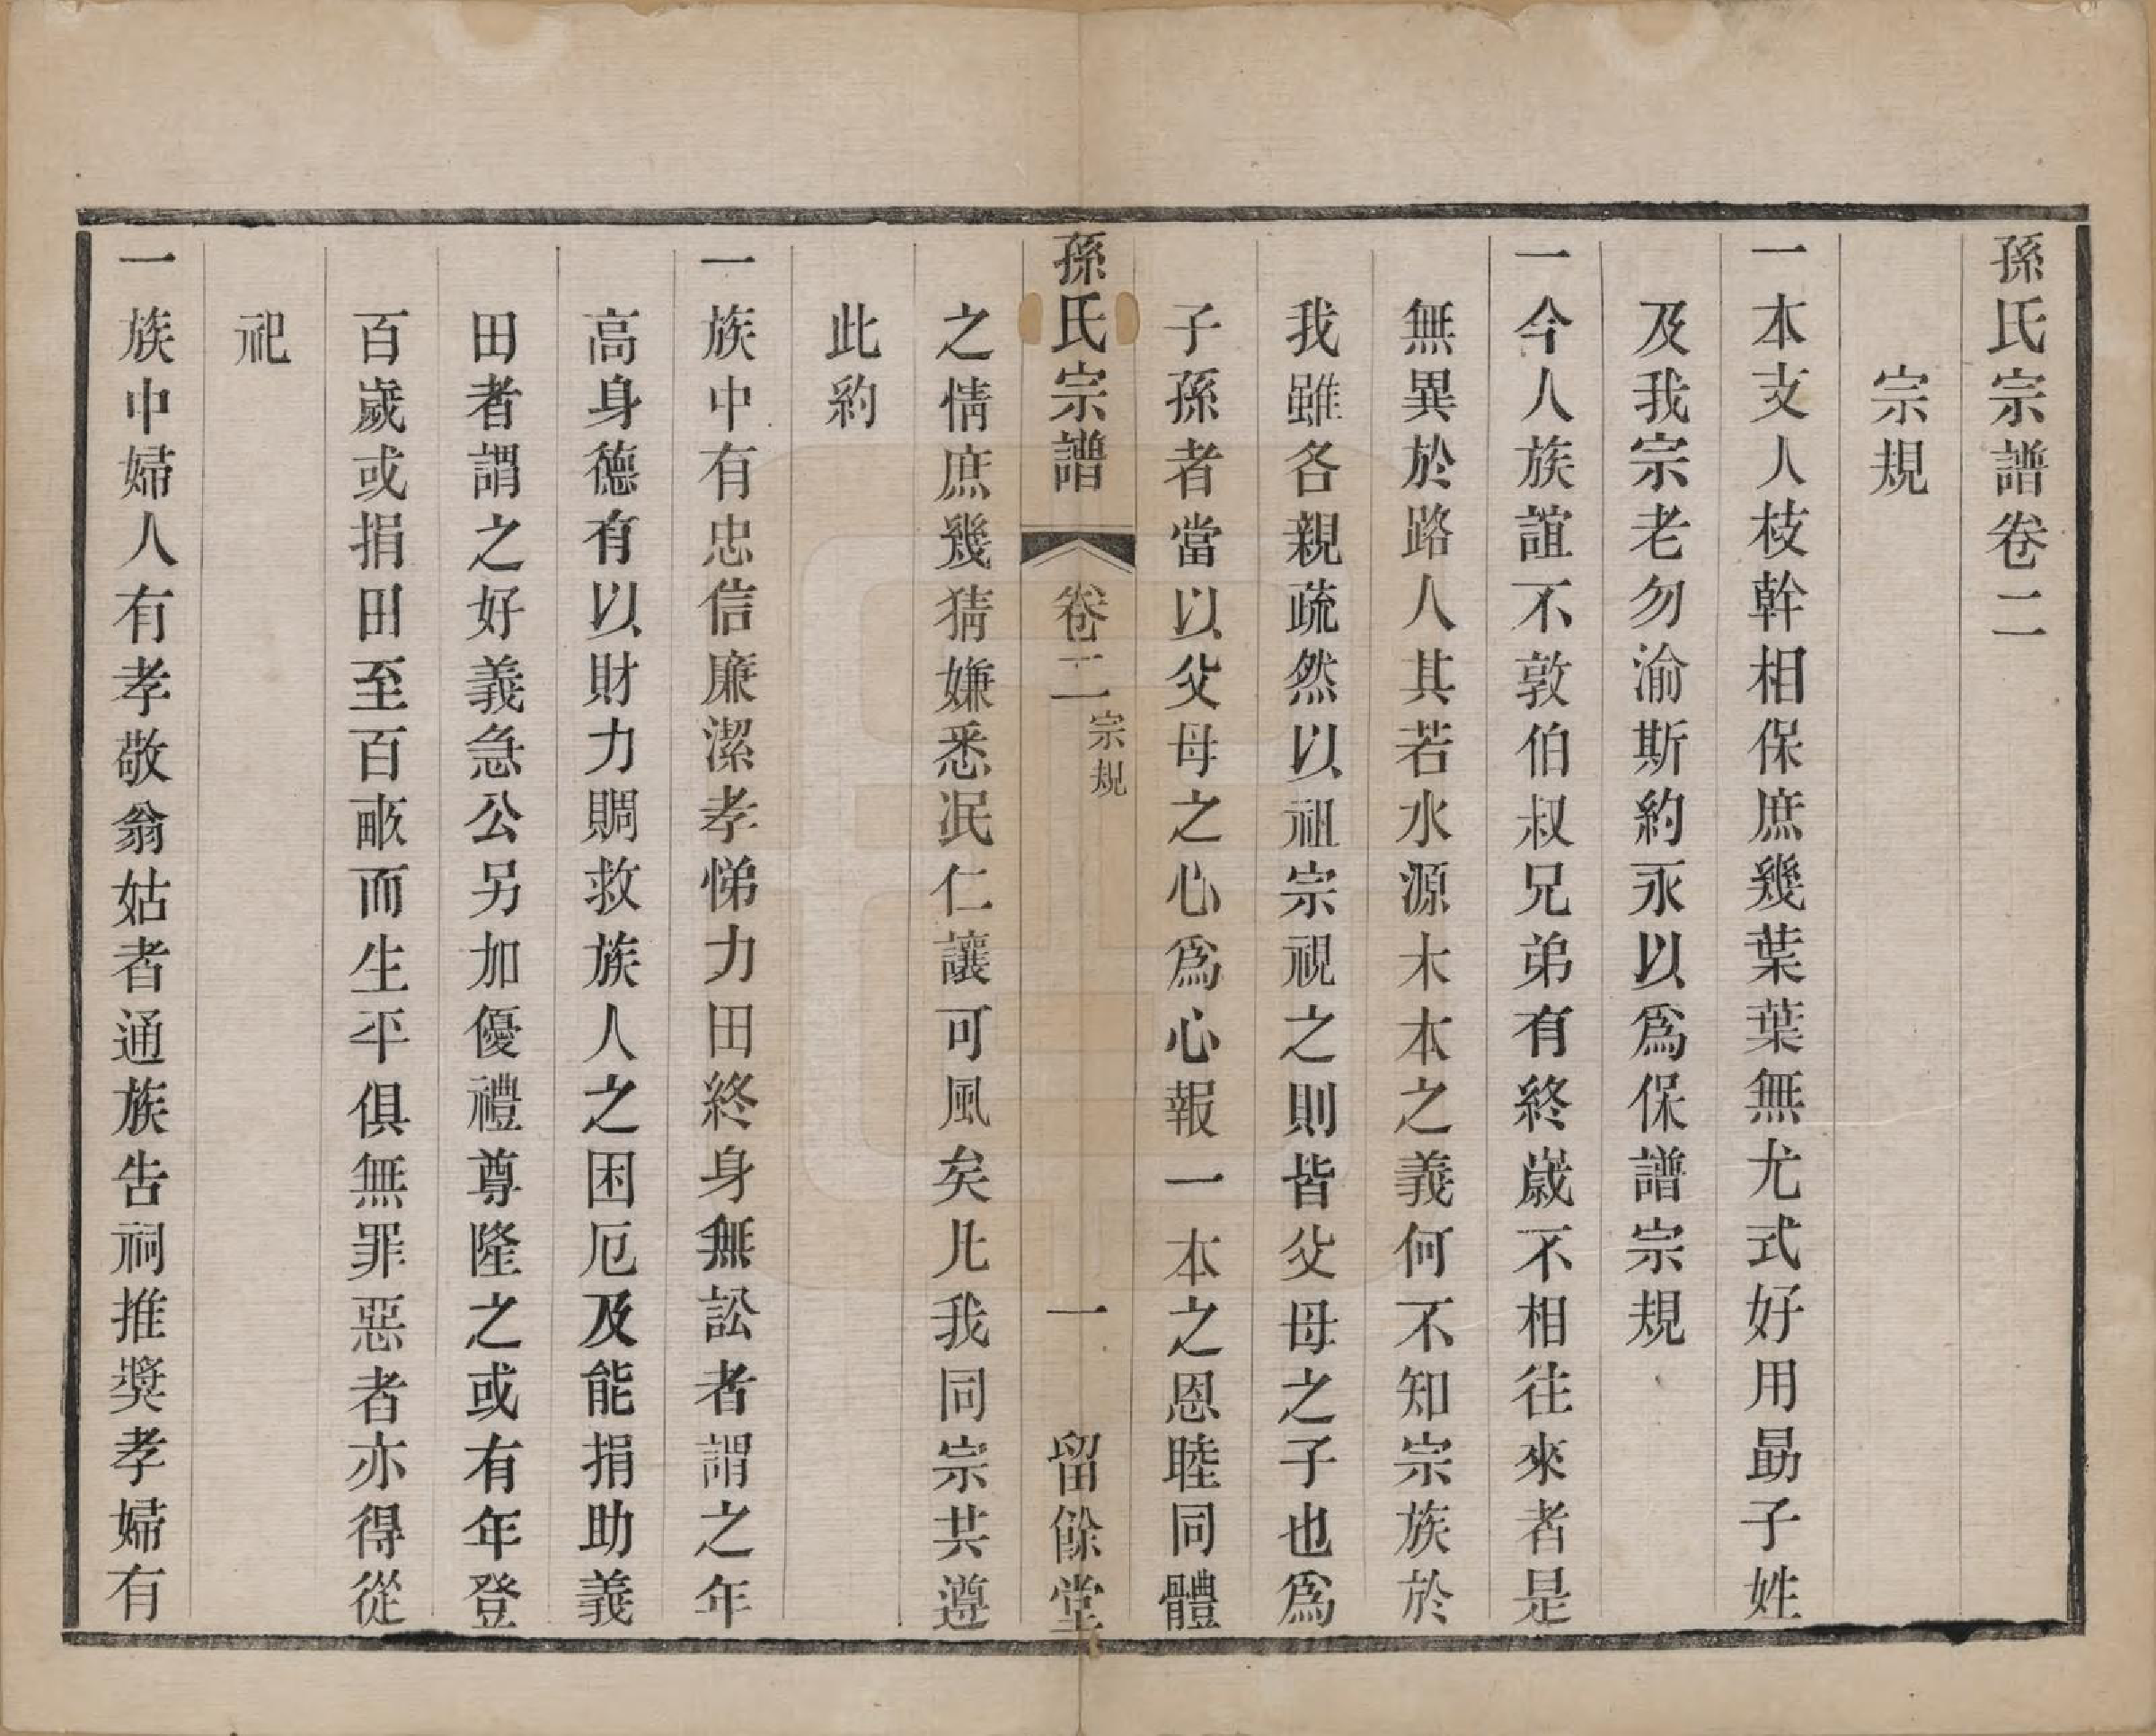 孫氏宗譜卷二
宗規
一本支人枝幹相保庶幾葉葉無尤式好用勗子姓
及我宗老勿渝斯約永以爲保譜宗規
一今人族誼不敦伯叔兄弟有終歲不相往來者是
無異於路人其若水源木本之義何不知宗族於
我雖各親疏然以祖宗視之則皆父母之子也爲
子孫者當以父母之心爲心報一本之恩睦同體
孫氏宗譜
卷二
宗規
一
留餘堂
之情庶幾猜嫌悉泯仁讓可風矣凡我同宗共遵
此約
一族中有忠信廉潔孝悌力田終身無訟者謂之年
高身德有以財力賙救族人之困厄及能捐助義
田者謂之好義急公另加優禮尊隆之或有年登
百歲或捐田至百畞而生平俱無罪惡者亦得從
祀
一族中婦人有孝敬翁姑者通族告祠推獎孝婦有